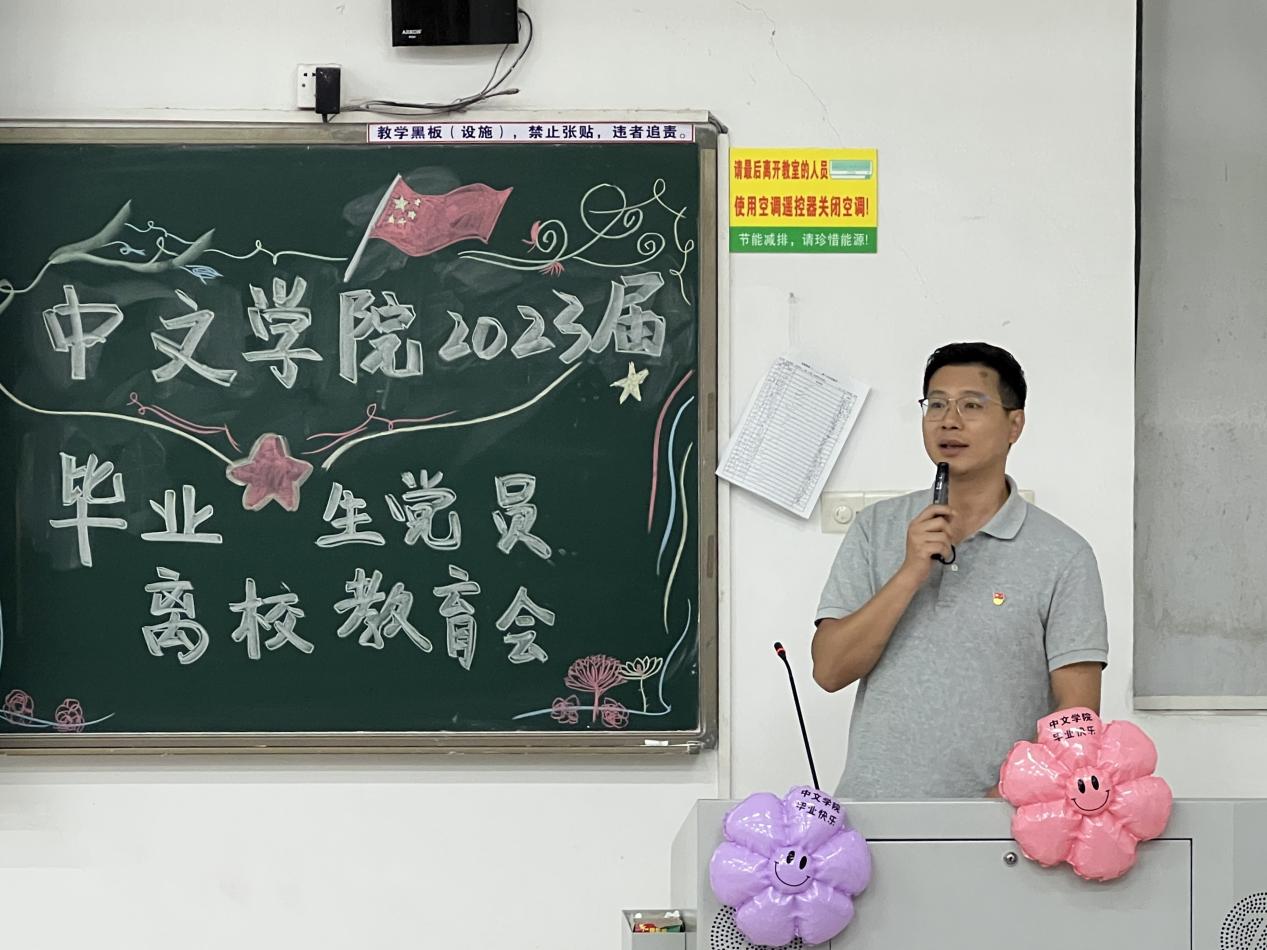 ARROW
教学黑板（设施），禁止张贴，违者追责。
请最后离开教室的人员
使用空调遥控器关闭空调!
节能减排，请珍惜能源!
中文学院2023届
毕业生党员
离校教育会
中文学院
毕业快乐
中文学院
毕业快乐